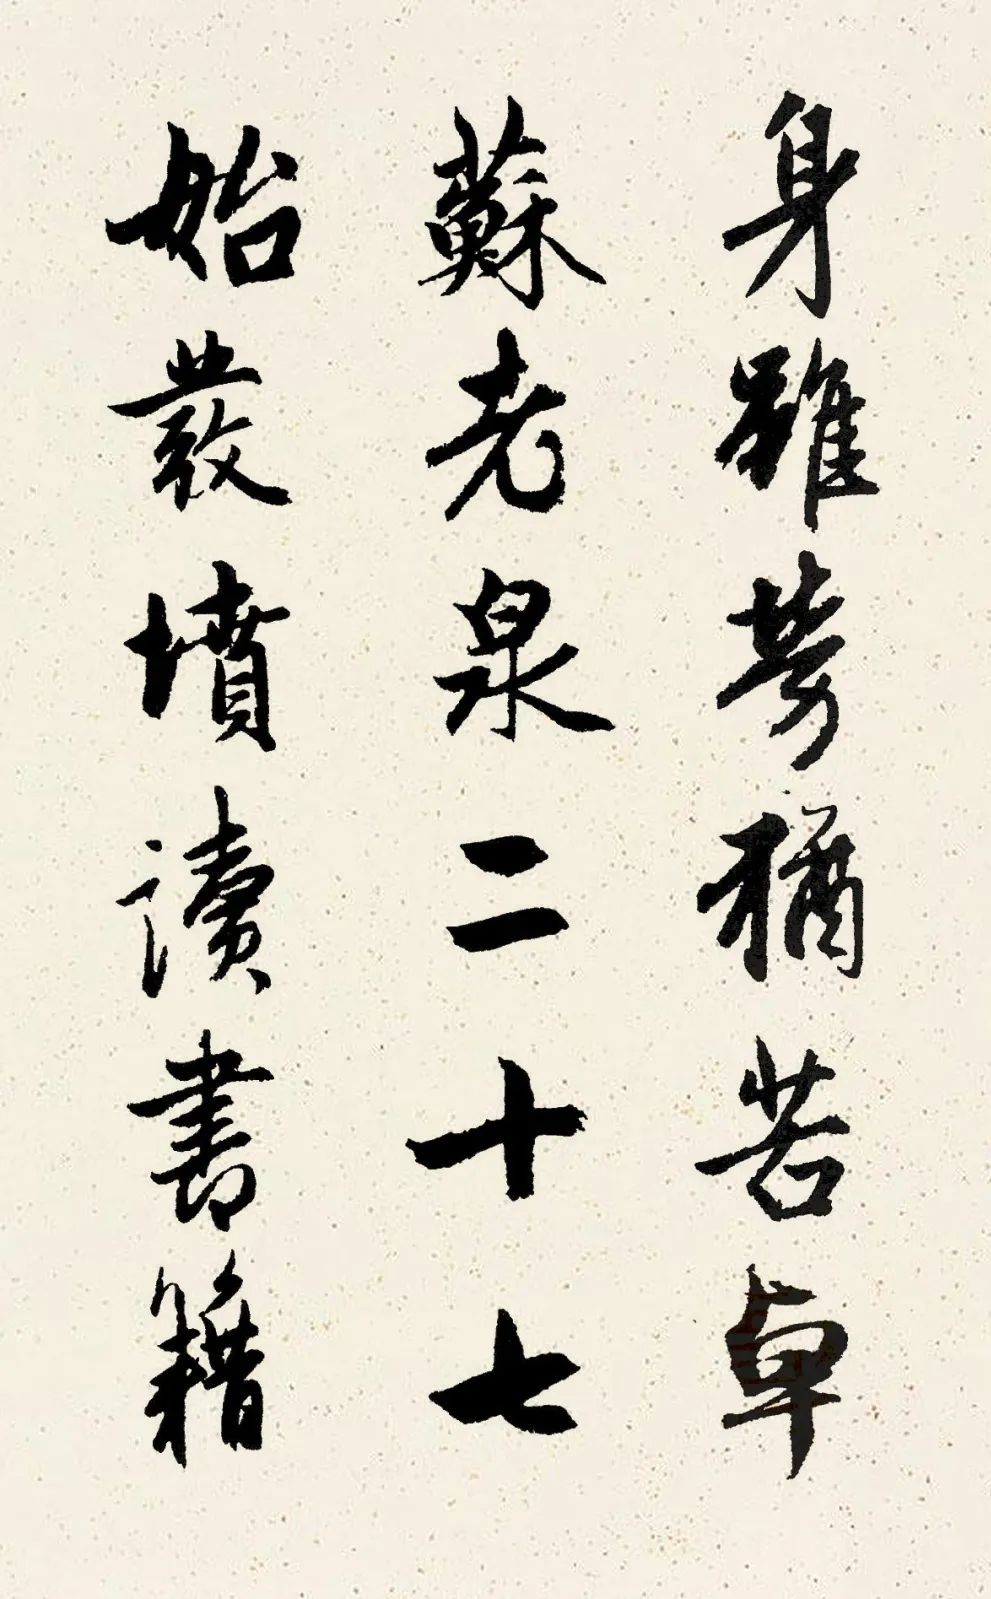 身雖勞猶苦卓
蘇老泉二十七
始發憤讀書籍